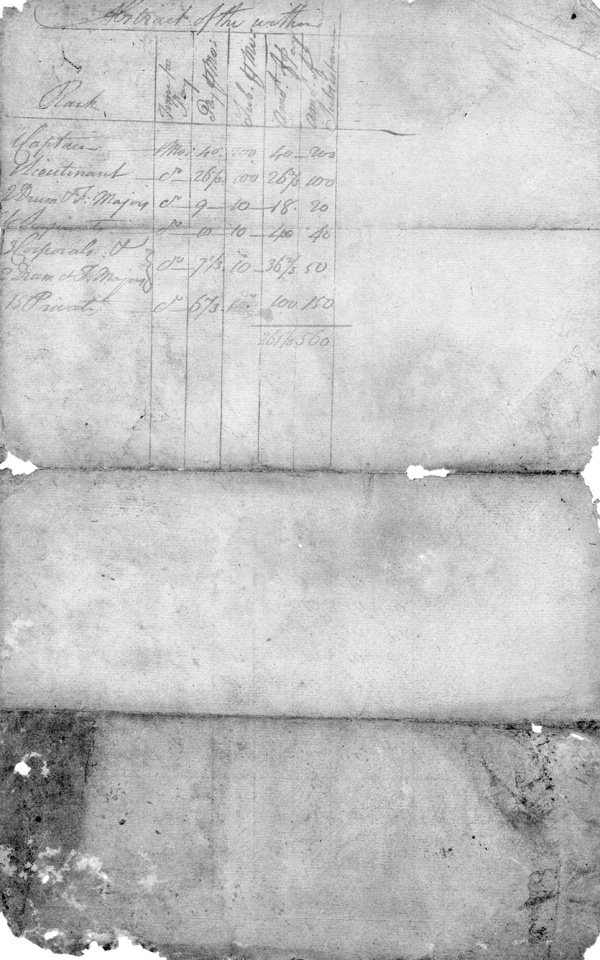 Abstract of the within
Rank Time for Pay Pay pr Mo: Sub. pr Mo: Amt. of Pay Amt. of Subsistence
Captain 1 Mo: 40 200 40 200
1 Lieutenant do 26⅔ 100 26⅔ 100
2 Drum & F. Majors do 9 10 18 20
4 do 10 10 40 40
3 Corporals &
2 Drum & F. Majors do 7⅓ 10 36⅔ 50
15 Privates do 6⅔ 100 150
261⅓ 560